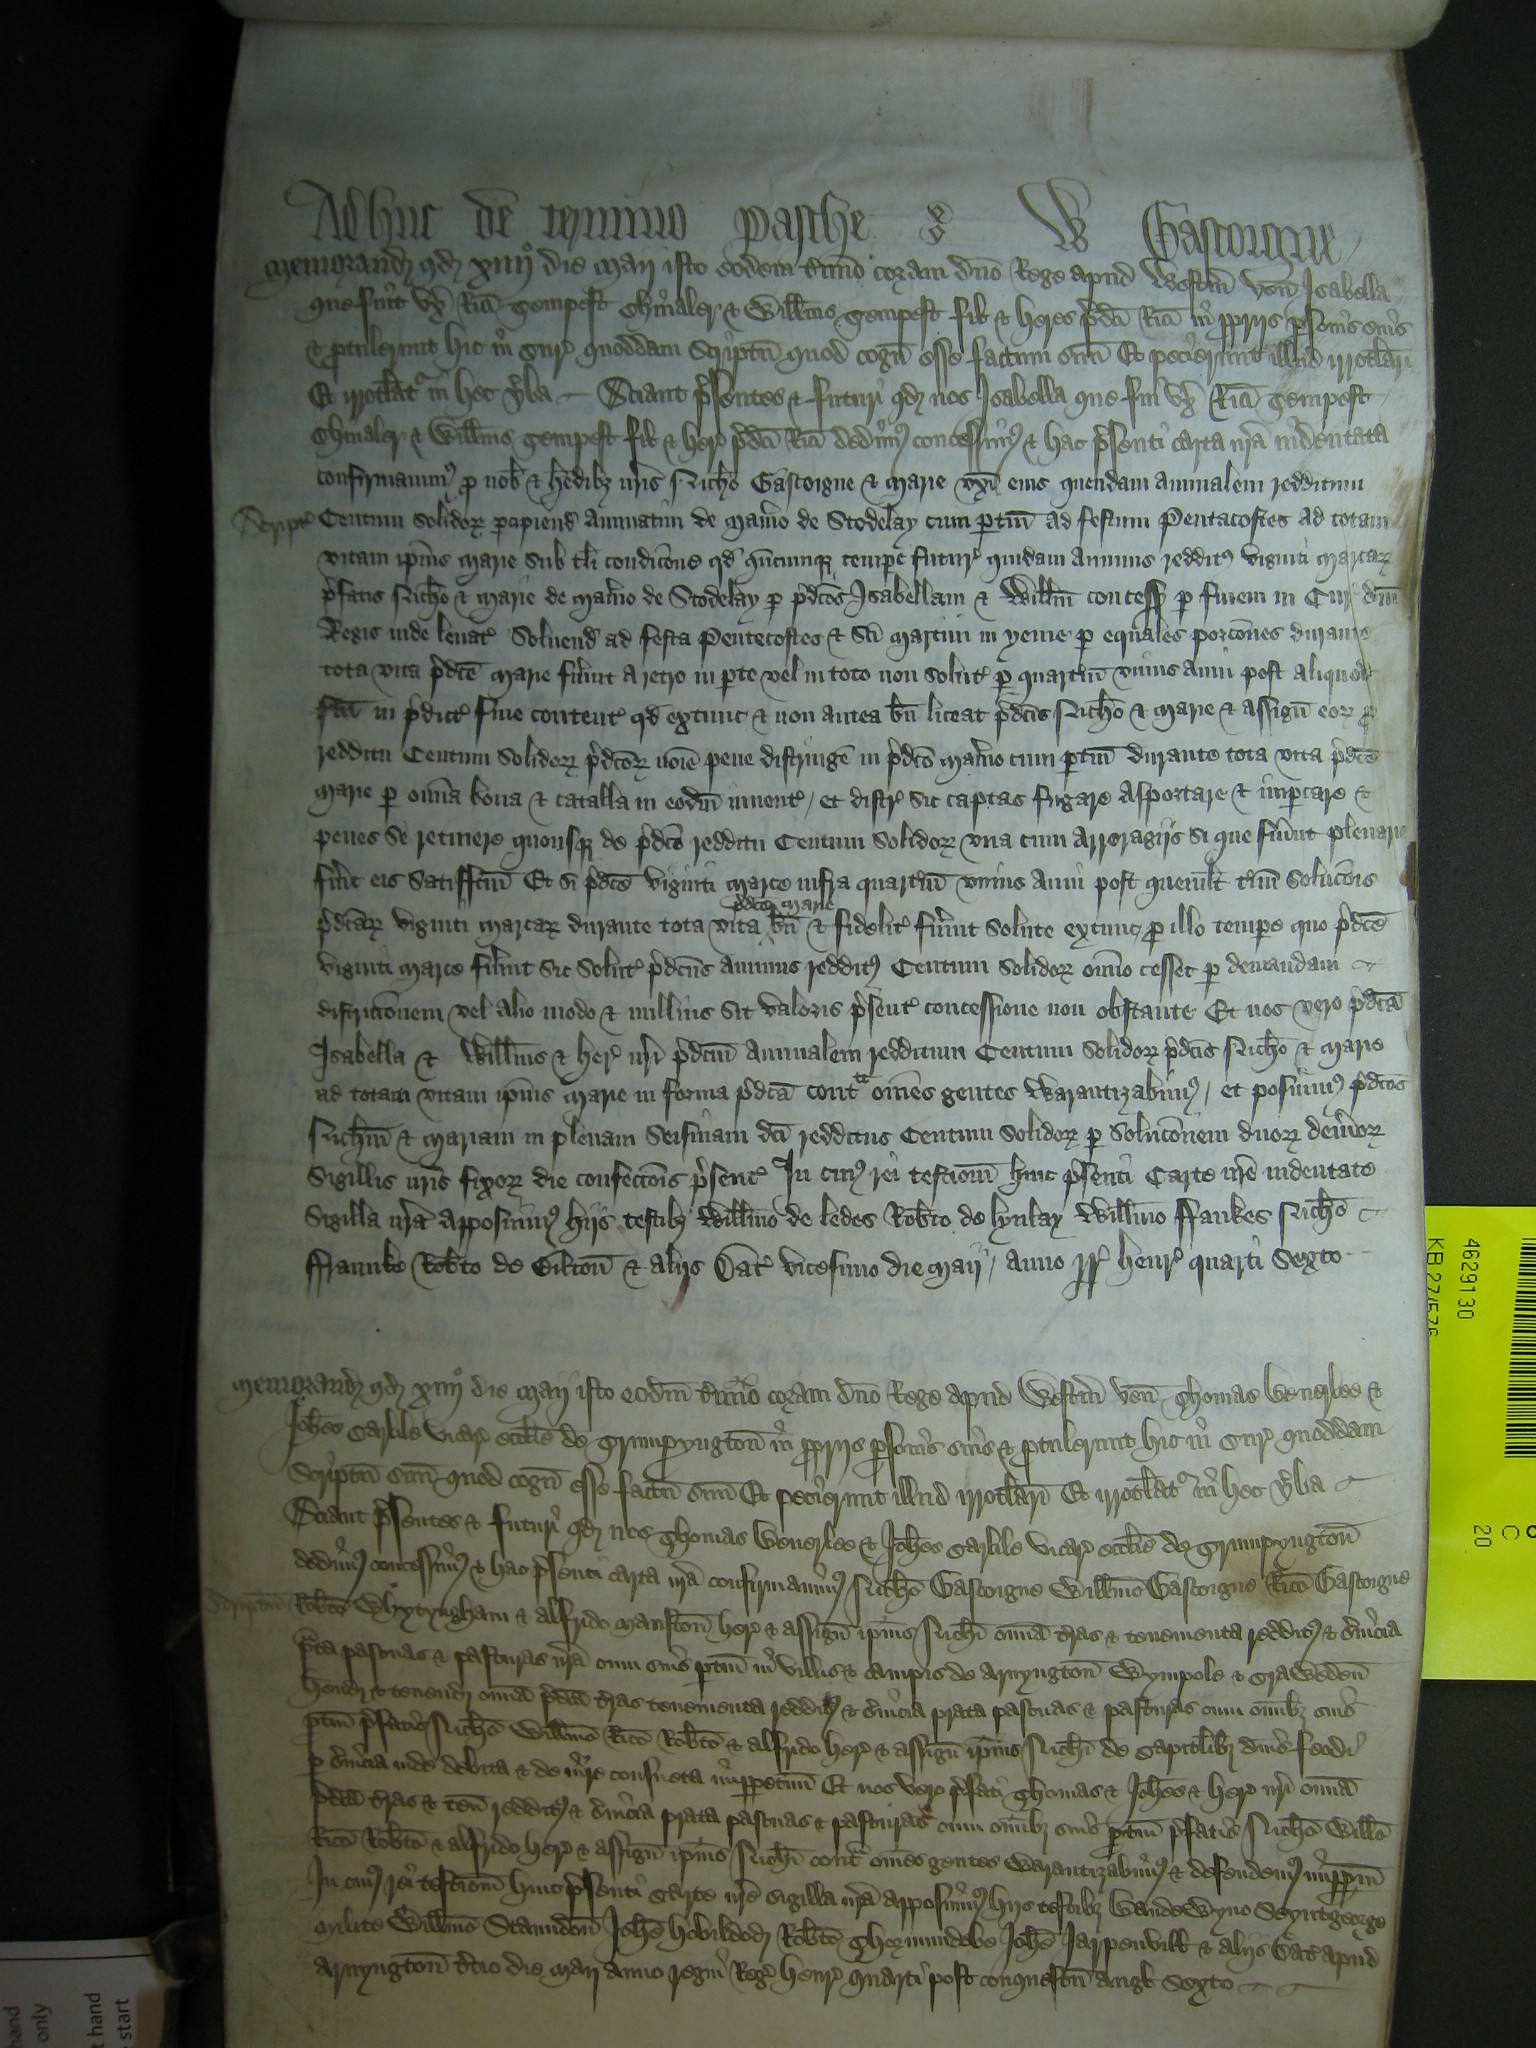 Adhuc de termino Pasche W Gascoigne
Memorand qd xiiij die Maij isto eodem tmino coram dno Rege apud Westm ven Isabella
que fuit ux Rici Tempest Chivaler & Willms Tempest fil & heres pdci Rici in ppriis psonis suis
& ptulerunt hic in Cur quoddam scriptu quod cogn esse factum suu Et petierunt illud irrotlari
Et irrotlat in hec vba Sciant psentes & futuri qd nos Isabella que fui ux Rici Tempest
Chivaler & Willms Tempest fil & her pdci Rici dedim concessim & hac psenti carta nra indentata
confirmavim p nob & hedibz nris Nicho Gascoigne & Marie uxi eius quendam annualem redditum
Script
Centum solidor pcipiend annuatim de manio de Stodelay cum ptin ad festum Pentecostes ad totam
vitam ipius Marie sub tli condicone qd qucumq tempe futur quidam annuus reddit viginti marcar
pfatis Nicho & Marie de manio de Stodelay p pdcos Isabellam & Willm concess p finem in Cur dni
Regis inde levat solvend ad festa Pentecostes & Sci Martini in yeme p equales porcones durante
tota vita pdce Marie fuint a retro in pte vel in toto non solut p quartiu unius anni post aliquod
fm in pdict fine content qd extunc & non antea bn liceat pdcis Nicho & Marie & assign eor p
redditu Centum solidor pdcor noie pene distringe in pdco manio cum ptin durante tota vita pdce
Marie p omia bona & catalla in eodm invent, et distr sic captas fugare asportare & impcare &
penes se retinere quousq de pdco redditu Centum solidor una cum arreragiis si que fuint plenarie
fuit eis satisfcm Et si pdce viginti marce infra quartiu unius anni post quemlt tmi solucois
pdce Marie
pdcar viginti marcar durante tota vita bn & fidelit fuint solute extunc p illo tempe quo pdce
viginti marce fuint sic solut pdcus annuus reddit Centum solidor omino cesset p demandam
districionem vel alio modo & nullius sit valoris psent concessione non obstante Et nos vero pdca
Isabella & Willms & her nri pdcm annualem redditum Centum solidor pdcis Nicho & Marie
ad totam vitam ipius Marie in forma pdca contra omes gentes Warantizabim, et posuim pdcos
Nichm & Mariam in plenam seisinam dci redditus Centum solidor p solucionem duor denior
sigillis nris fixor die confeccois psent In cui rei testiom huic psenti carte nre indentate
sigilla nra apposuim hiis testibz Willmo de Ledes Robto de Lynlay Willmo ffankes Nicho
ffranke Robto de Eilton & aliis Dat vicesimo die Maij, anno rr henr quarti sexto
Memorand qd xiiij die Maij isto eodm tmino coram dno Rege apud Westm ven Thomas Beuerlee &
Johes Carlile vicar ecclie de Trumpyngton in ppriis psonis suis & ptulerunt hic in Cur quoddam
scriptu suu quod cogn esse factu suu Et petierunt illud irrotlari Et irrotlat in hec vba
Sciant psentes & futuri qd nos Thomas Beuerlee & Johes Carlile vicar ecclie de Trumpyngton
dedim concessim & hac psenti carta nra confirmavim Nicho Gascoigne Willmo Gascoigne Rico Gascoigne
Scriptu
Robto Whytyngham & Alfrido Manston her & assign ipius Nichi omia tras & tenementa reddit & svicia
prata pascuas & pasturas nra cum suis ptin in villis & campis de Arnyngton Wympole & Craweden
hend & tenend omia pdca tras tenementa reddit & svicia prata pascuas & pasturas cum omibz suis
ptin pfatis Nicho Willmo Rico Robto & Alfrido her & assign ipius Nichi de capitlibz dnis feodi
p svicia inde debita & de iure consueta imppetuu Et nos vero pfati Thomas & Johes & her nri omia
pdca tras & ten reddit & svicia prata pascuas & pasturas cum omibz suis ptin pfatis Nicho Willo
Rico Robto & Alfrido her & assign ipius Nichi contr omes gentes Warantizabim & defendem imppm
In cui rei testiom huic psenti carte nre sigilla nra apposuim hiis testibz Baudewyno Seyntgeorge
milite Willmo Staundon Johe Hobildod Robto Johe & aliis Dat apud
Arnyngton tcio die Maij anno regni Reg henr quarti post conquestu angl sexto
4629130
KB 27/576
C
20
hand
only
t hand
start